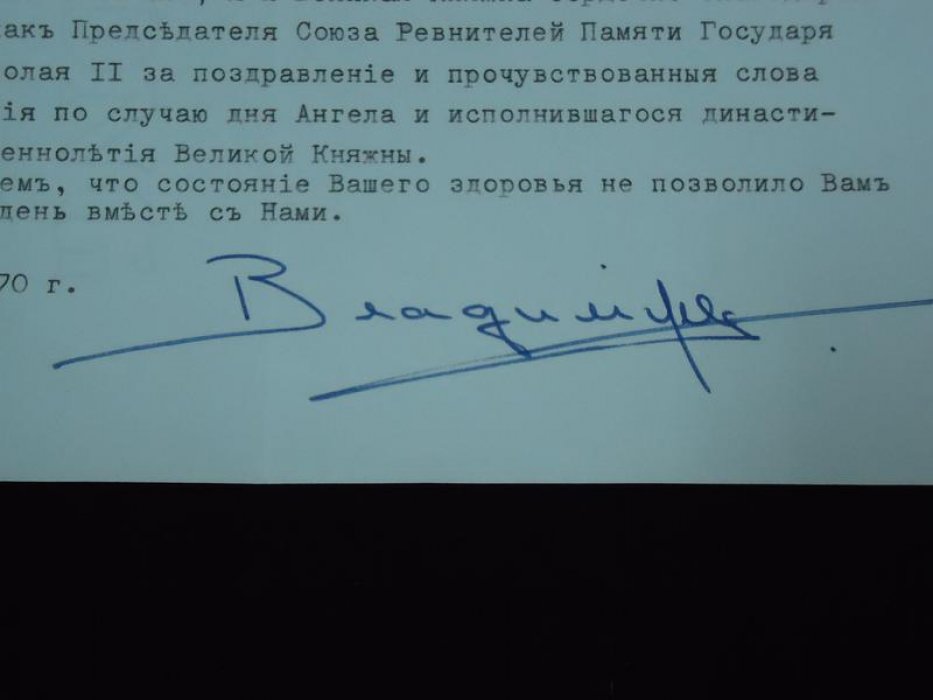 акъ Предсѣдателя Союза Ревнителей Памяти Государя
олая II за поздравленіе и прочувствованныя слова
ія по случаю дня Ангела и исполнившагося династи-
еннолѣтія Великой Княжны.
емъ, что состояніе Вашего здоровья не позволило Вамъ
день вмѣстѣ съ Нами.
70 г.
Владиміръ